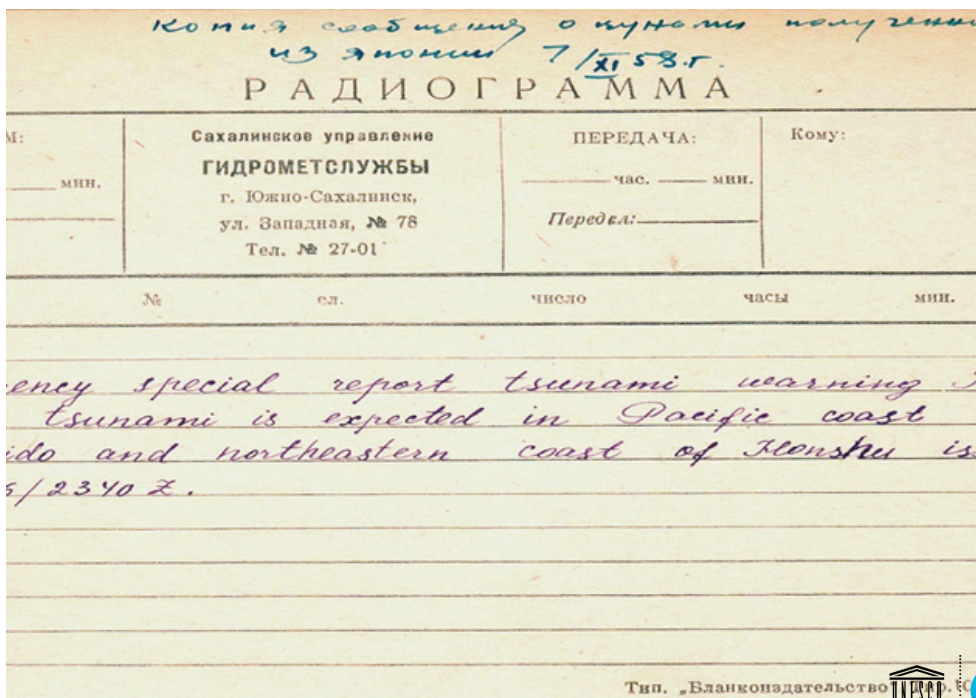 Копия сообщения о цунами
из Японии 7/XI 58 г.
РАДИОГРАММА
М:
мин.
Сахалинское управление
ГИДРОМЕТСЛУЖБЫ
г. Южно-Сахалинск,
ул. Западная, № 78
Тел. № 27-01
ПЕРЕДАЧА:
час. мин.
Передал:
Кому:
№ сл. число часы мин.
ency special report tsunami warning
tsunami is expected in Pacific coast
ido and northeastern coast of Honshu is
/2340 Z.
Тип. „Бланкоиздательство"
UNESCO